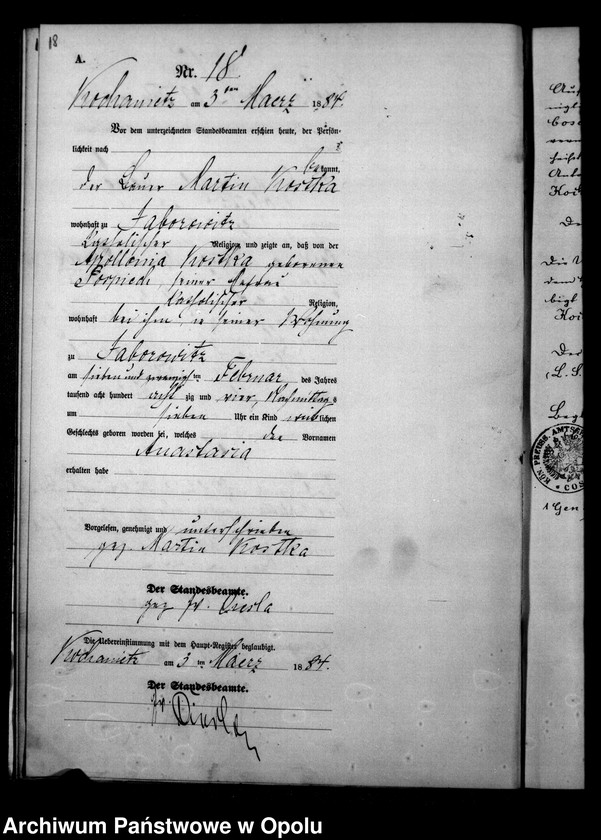 18
A.
Nr. 18
Kochanietz am 3ten Maerz 1884.
Vor dem unterzeichneten Standesbeamten erschien heute, der Persön-
lichkeit nach
be kannt,
der Bauer Martin Kostka
wohnhaft zu Jaborowitz
katholischer Religion, und zeigte an, daß von der
Apollonia Kostka geborenen
Pospiech, seiner Ehefrau
katholischer Religion,
wohnhaft bei ihm in seiner Wohnung
zu Jaborowitz
am sieben und zwanzigsten Februar des Jahres
tausend acht hundert acht zig und vier, Nachmittags
um sieben Uhr ein Kind weiblichen
Geschlechts geboren worden sei, welches den Vornamen
Anastasia
erhalten habe
Vorgelesen, genehmigt und unterschrieben
gez. Martin Kostka
Der Standesbeamte.
gez. Fr.
Die Uebereinstimmung mit dem Haupt-Register beglaubigt.
Kochanietz am 3 ten Maerz 1884.
Der Standesbeamte.
Fr.
KÖN. PREUSS. AMTSGE
COS
Archiwum Państwowe w Opolu